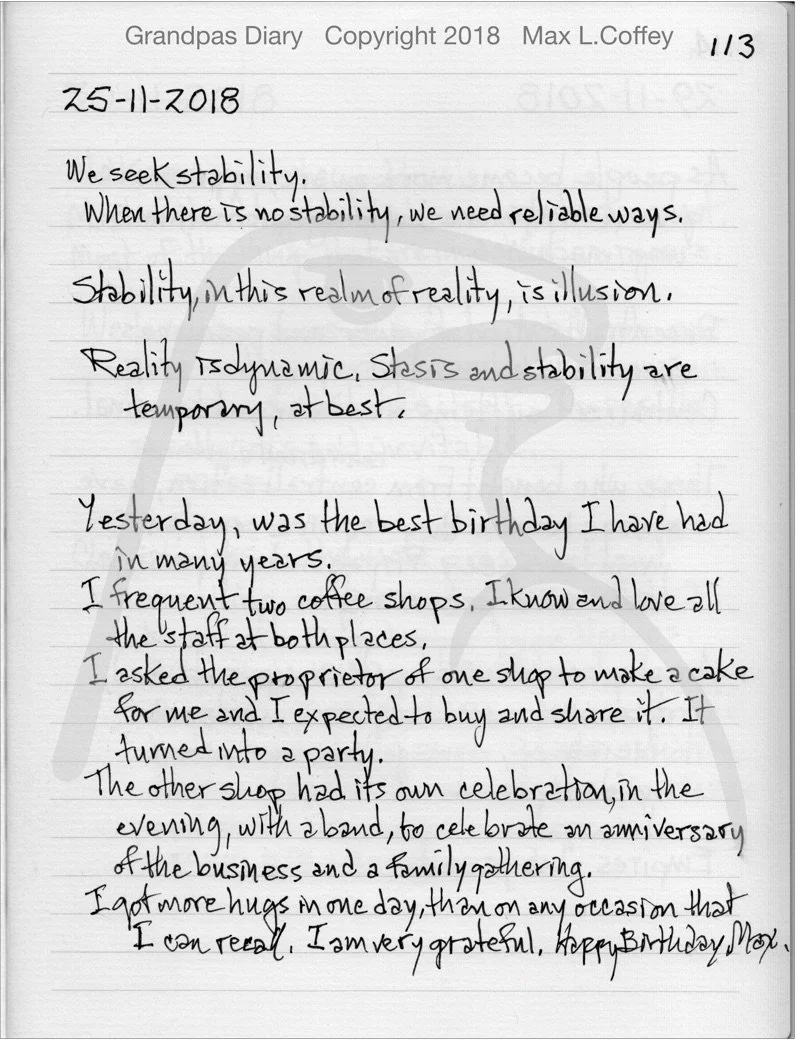 Grandpas Diary Copyright 2018 Max L.Coffey
113
25-11-2018
We seek stability.
When there is no stability, we need reliable ways.
Stability, in this realm of reality, is illusion.
Reality is dynamic. Stasis and stability are
temporary, at best.
Yesterday, was the best birthday I have had
in many years.
I frequent two coffee shops. I know and love all
the staff at both places.
I asked the proprietor of one shop to make a cake
for me and I expected to buy and share it. It
turned into a party.
The other shop had its own celebration, in the
evening, with a band, to celebrate an anniversary
of the business and a family gathering.
I got more hugs in one day, than on any occasion that
I can recall. I am very grateful. Happy Birthday, Max.